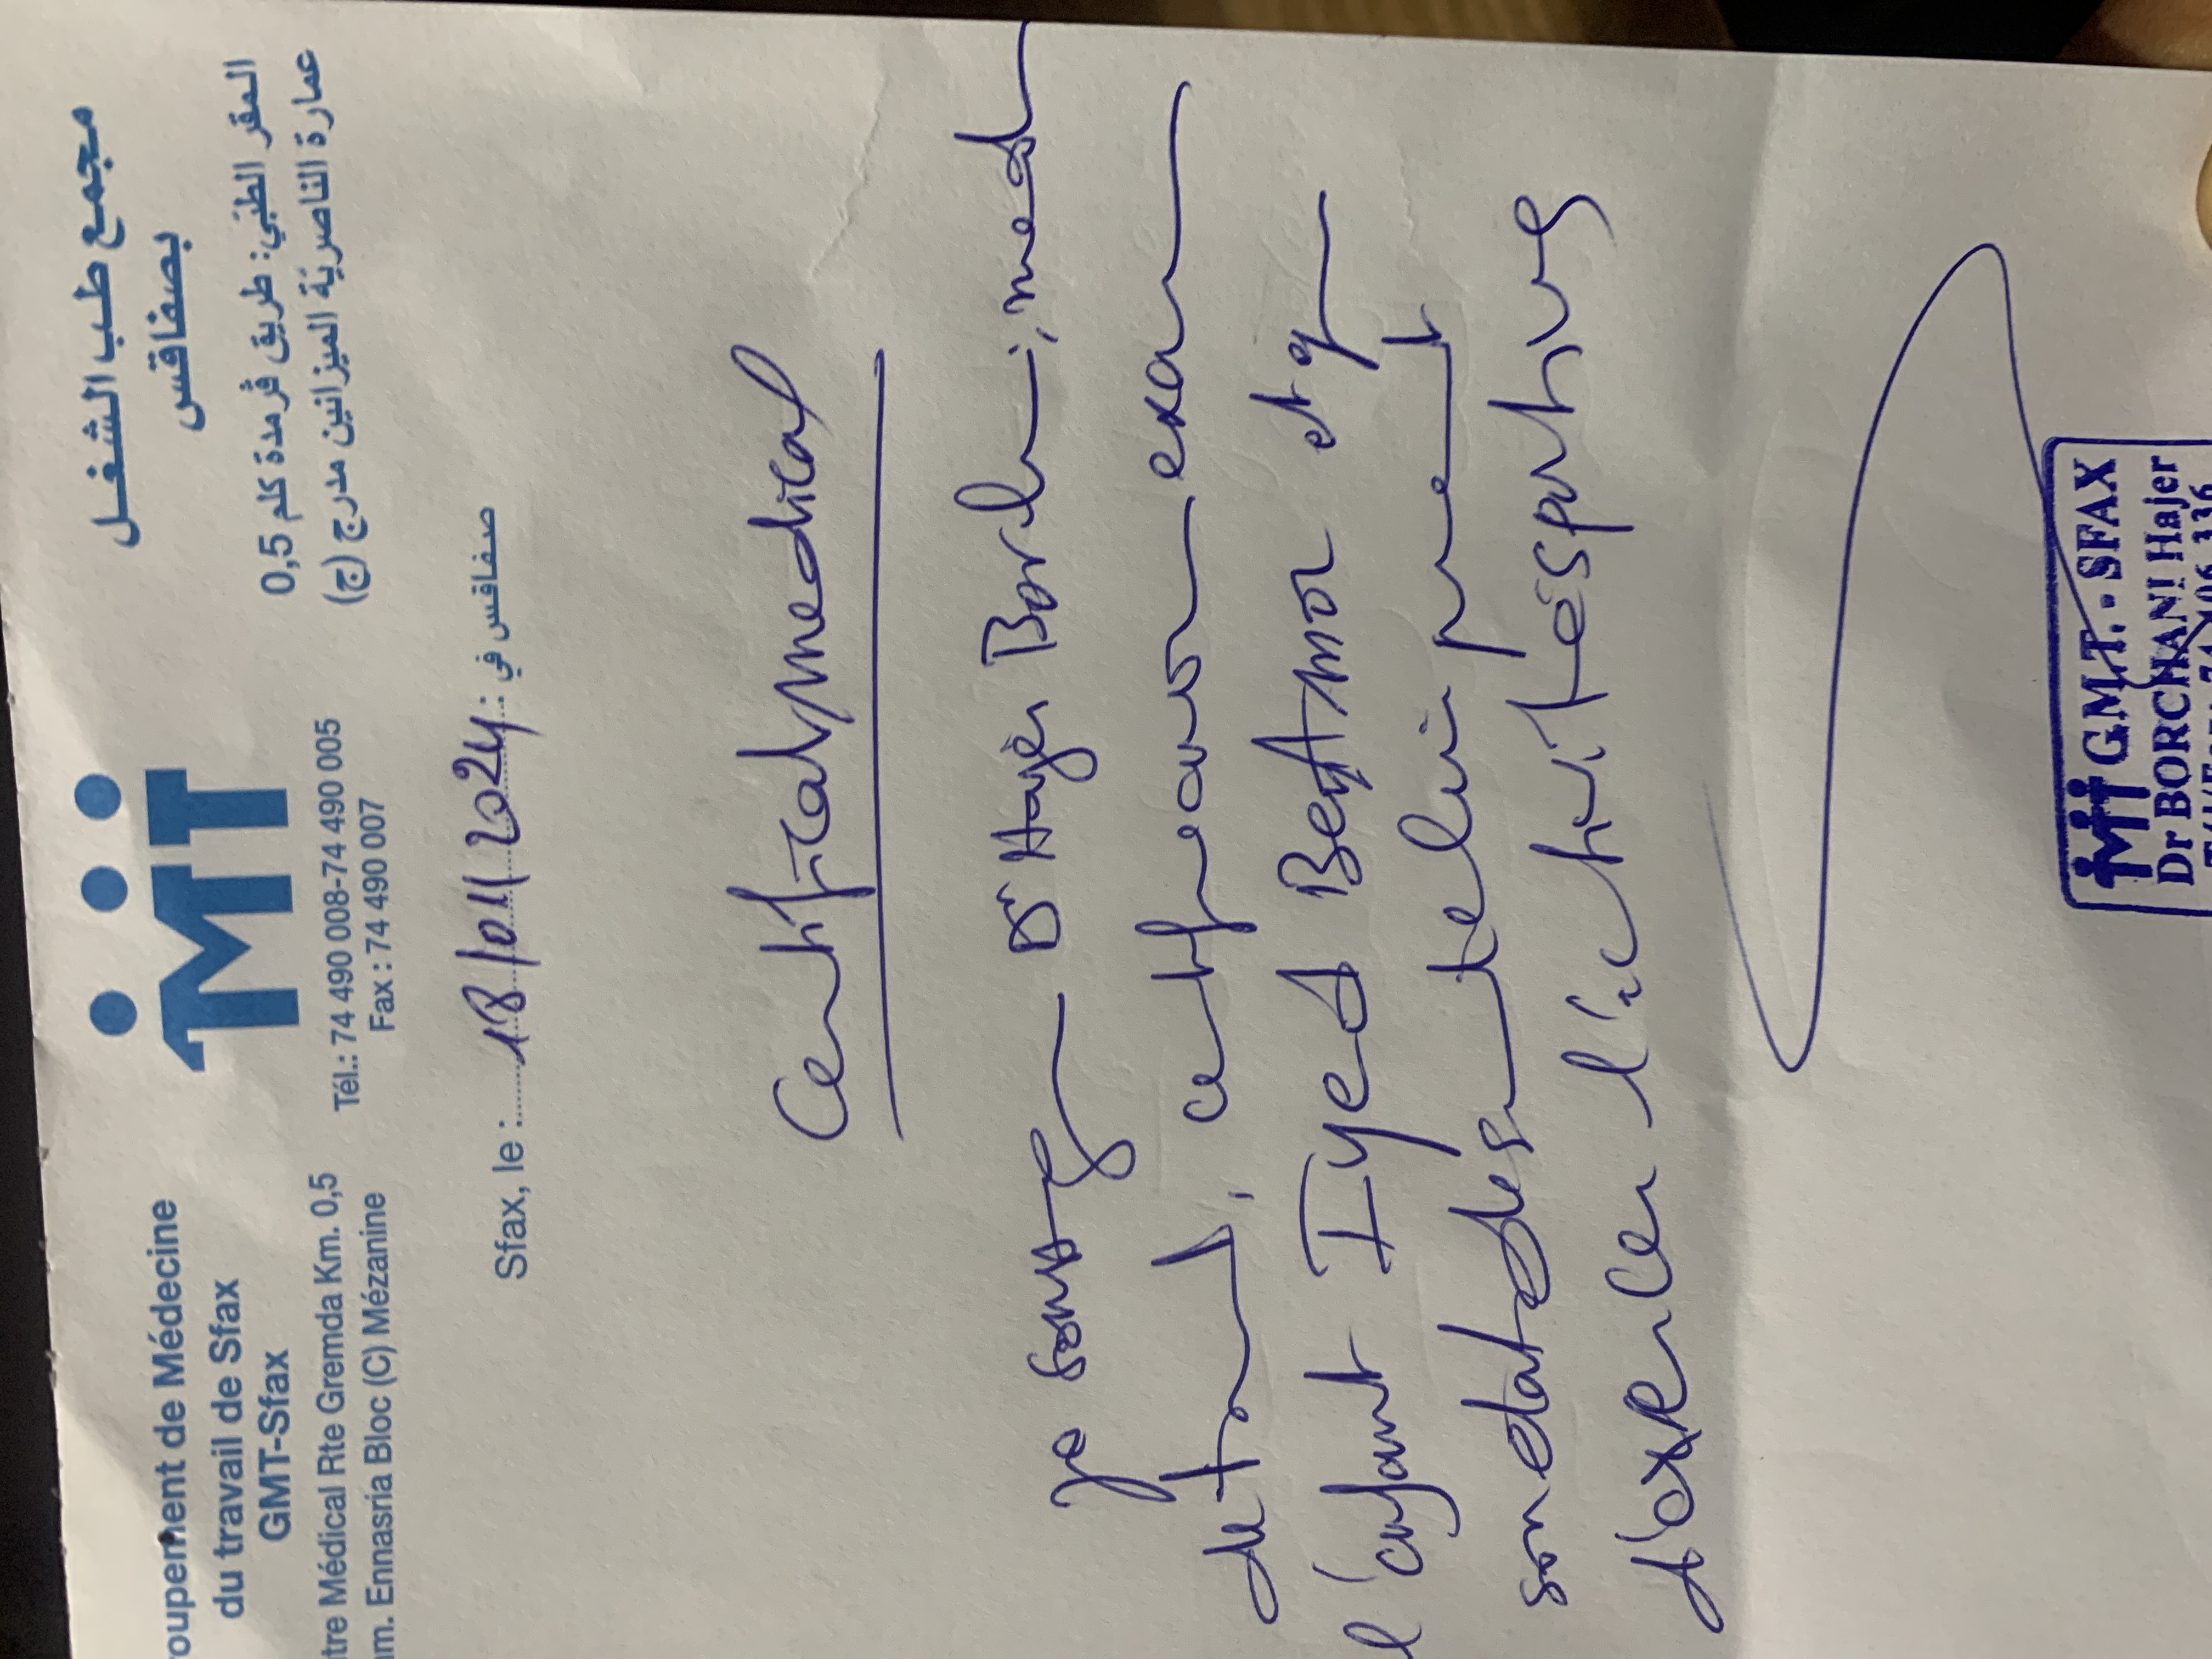 roupement de Médecine
du travail de Sfax
GMT-Sfax
tre Médical Rte Gremda Km. 0,5
m. Ennasria Bloc (C) Mézanine
iMT
Tél.: 74 490 008-74 490 005
Fax : 74 490 007
مجمع طب الشغل
بصفاقس
المقر الطبي: طريق ڤرمدة كلم 0,5
عمارة الناصرية الميزانين مدرج (ج)
Sfax, le : 18/01/2024 : صفاقس في
Certificat médical
Je soussigné Dr Hajer Borchani, méd
du travail, certifie avoir exam
l'enfant Iyed Ben Amor et q
son état de santé lui permet
d'exercer l'activité sportive
GMT. - SFAX
Dr BORCHANI Hajer